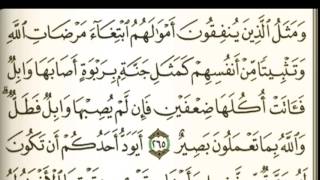 وَمَثَلُ ٱلَّذِينَ يُنفِقُونَ أَمْوَٰلَهُمُ ٱبْتِغَآءَ مَرْضَاتِ ٱللَّهِ
وَتَثْبِيتًا مِّنْ أَنفُسِهِمْ كَمَثَلِ جَنَّةٍۭ بِرَبْوَةٍ أَصَابَهَا وَابِلٌ
فَـَٔاتَتْ أُكُلَهَا ضِعْفَيْنِ فَإِن لَّمْ يُصِبْهَا وَابِلٌ فَطَلٌّ ۗ
وَٱللَّهُ بِمَا تَعْمَلُونَ بَصِيرٌ ٢٦٥ أَيَوَدُّ أَحَدُكُمْ أَن تَكُونَ